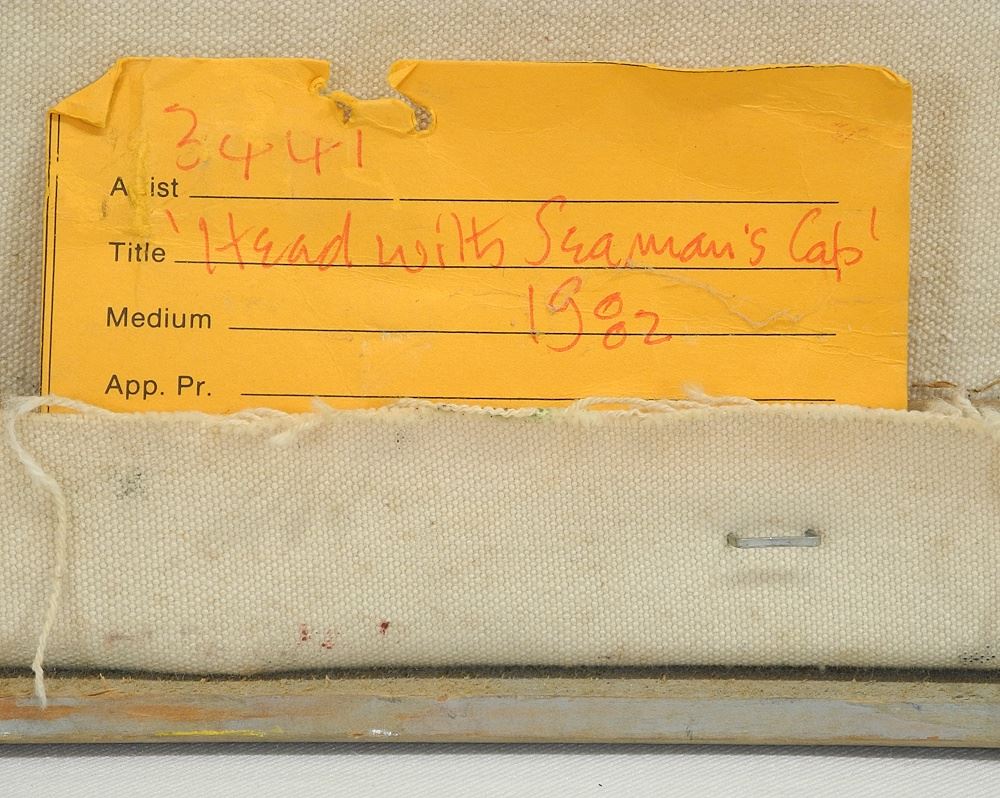 3441
A ist
Title 'Head with Seaman's Cap'
Medium 1982
App. Pr.